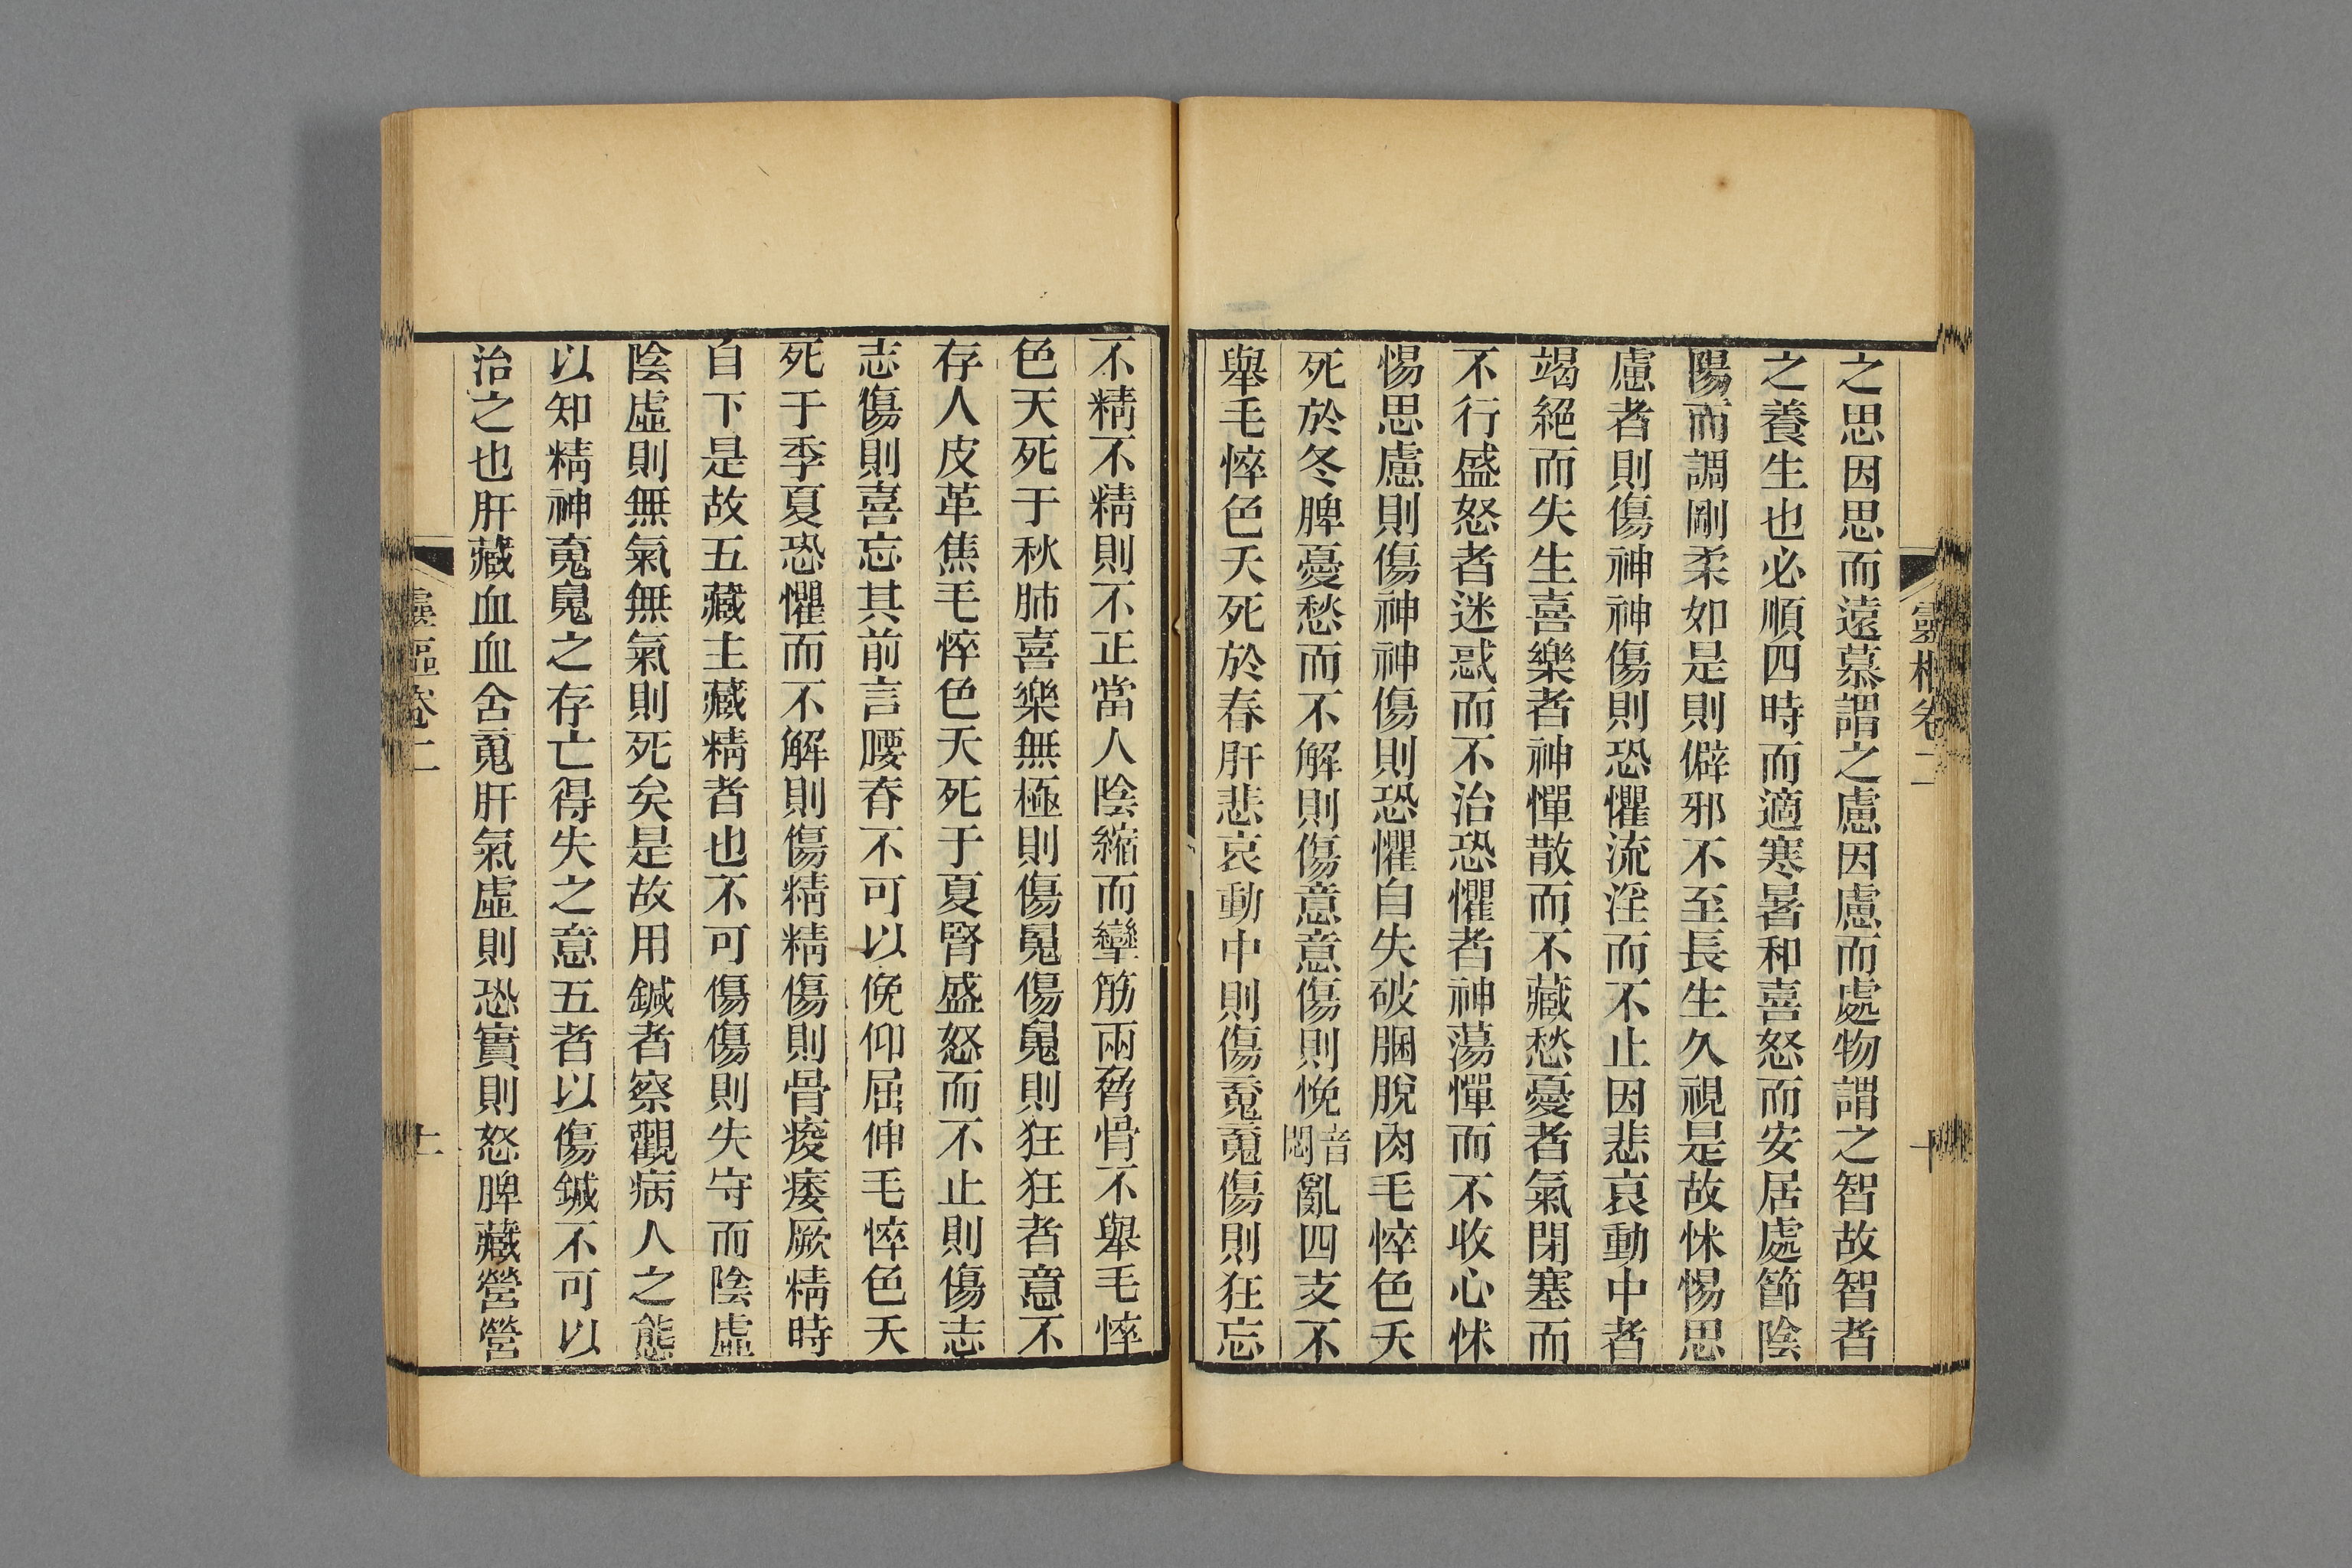 靈樞卷二
十
之思因思而遠慕謂之慮因慮而處物謂之智故智者
之養生也必順四時而適寒暑和喜怒而安居處節陰
陽而調剛柔如是則僻邪不至長生久視是故怵惕思
慮者則傷神神傷則恐懼流淫而不止因悲哀動中者
竭絕而失生喜樂者神憚散而不藏愁憂者氣閉塞而
不行盛怒者迷惑而不治恐懼者神蕩憚而不收心怵
惕思慮則傷神神傷則恐懼自失破䐃脫肉毛悴色夭
死於冬脾憂愁而不解則傷意意傷則悗音悶亂四支不
舉毛悴色夭死於春肝悲哀動中則傷䰟䰟傷則狂忘
不精不精則不正當人陰縮而攣筋兩脅骨不舉毛悴
色夭死于秋肺喜樂無極則傷魄傷魄則狂狂者意不
存人皮革焦毛悴色夭死于夏腎盛怒而不止則傷志
志傷則喜忘其前言腰脊不可以俛仰屈伸毛悴色夭
死于季夏恐懼而不解則傷精精傷則骨痠痿厥精時
自下是故五藏主藏精者也不可傷傷則失守而陰虛
陰虛則無氣無氣則死矣是故用鍼者察觀病人之態
以知精神䰟魄之存亡得失之意五者以傷鍼不可以
治之也肝藏血血舍䰟肝氣虛則恐實則怒脾藏營營
靈樞卷二